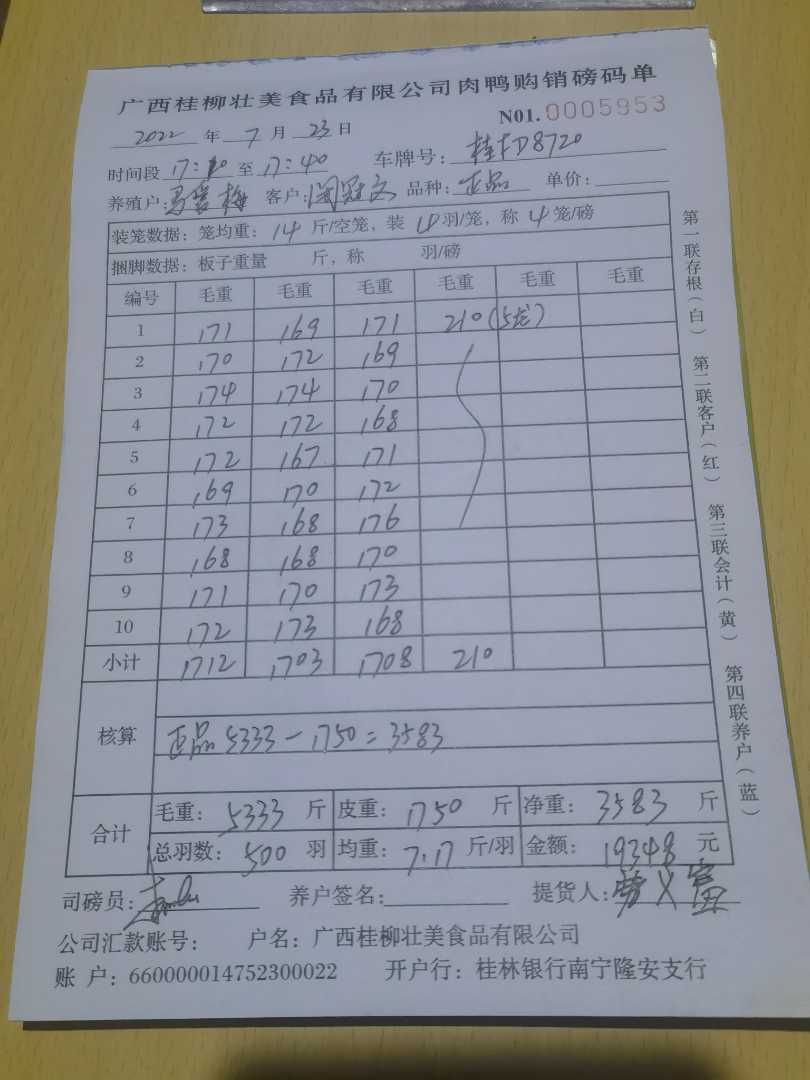 广西桂柳壮美食品有限公司肉鸭购销磅码单
N01. 0005953
2022 年 7 月 23 日
时间段 17:10 至 17:40 车牌号: 桂FD8720
养殖户: 客户: 品种: 正品 单价:
装笼数据: 笼均重: 14 斤/空笼, 装 羽/笼, 称 4 笼/磅
捆脚数据: 板子重量 斤, 称 羽/磅
编号 毛重 毛重 毛重 毛重 毛重 毛重
1 171 169 171 210 (5笼)
2 170 172 169
3 174 174 170
4 172 172 168
5 172 167 171
6 169 170 172
7 173 168 176
8 168 168 170
9 171 170 173
10 172 173 168
小计 1712 1703 1708 210
核算 正品 5333-1750=3583
合计 毛重: 5333 斤 皮重: 1750 斤 净重: 3583 斤
总羽数: 500 羽 均重: 7.17 斤/羽 金额: 19348 元
司磅员: 养户签名: 提货人:
公司汇款账号: 户名: 广西桂柳壮美食品有限公司
账 户: 660000014752300022 开户行: 桂林银行南宁隆安支行
第一联存根(白) 第二联客户(红) 第三联会计(黄) 第四联养户(蓝)